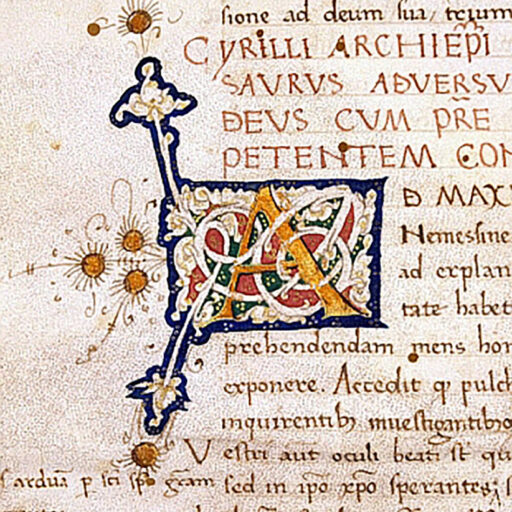 sione ad deum sua, terum
CYRILLI ARCHIEP̄I
SAVRVS ADVERSV
DEVS CVM PR̄E
PETENTEM CON
A D MAXI
Nemesine
ad explan
tate habet
prehendendam mens hom
exponere. Accedit q̨ pulch
inquirentib; inuestigantibo
Vestri aut oculi beati st̄ qu
sed in ip̄o xp̄o sperantes; s